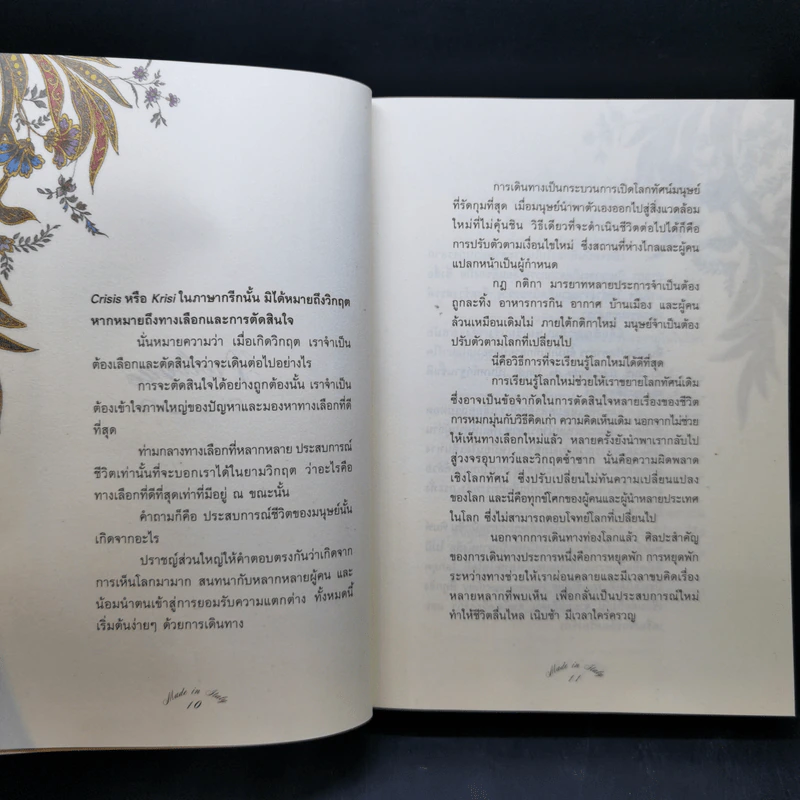 Crisis หรือ Krisi ในภาษากรีกนั้น มิได้หมายถึงวิกฤต
หากหมายถึงทางเลือกและการตัดสินใจ
นั่นหมายความว่า เมื่อเกิดวิกฤต เราจำเป็น
ต้องเลือกและตัดสินใจว่าจะเดินต่อไปอย่างไร
การจะตัดสินใจได้อย่างถูกต้องนั้น เราจำเป็น
ต้องเข้าใจภาพใหญ่ของปัญหาและมองหาทางเลือกที่ดี
ที่สุด
ท่ามกลางทางเลือกที่หลากหลาย ประสบการณ์
ชีวิตเท่านั้นที่จะบอกเราได้ในยามวิกฤต ว่าอะไรคือ
ทางเลือกที่ดีที่สุดเท่าที่มีอยู่ ณ ขณะนั้น
คำถามก็คือ ประสบการณ์ชีวิตของมนุษย์นั้น
เกิดจากอะไร
ปราชญ์ส่วนใหญ่ให้คำตอบตรงกันว่าเกิดจาก
การเห็นโลกมามาก สนทนากับหลากหลายผู้คน และ
น้อมนำตนเข้าสู่การยอมรับความแตกต่าง ทั้งหมดนี้
เริ่มต้นง่ายๆ ด้วยการเดินทาง
Made in
10
การเดินทางเป็นกระบวนการเปิดโลกทัศน์มนุษย์
ที่รัดกุมที่สุด เมื่อมนุษย์นำพาตัวเองออกไปสู่สิ่งแวดล้อม
ใหม่ที่ไม่คุ้นชิน วิธีเดียวที่จะดำเนินชีวิตต่อไปได้ก็คือ
การปรับตัวตามเงื่อนไขใหม่ ซึ่งสถานที่ห่างไกลและผู้คน
แปลกหน้าเป็นผู้กำหนด
กฎ กติกา มารยาทหลายประการจำเป็นต้อง
ถูกละทิ้ง อาหารการกิน อากาศ บ้านเมือง และผู้คน
ล้วนเหมือนเดิมไม่ ภายใต้กติกาใหม่ มนุษย์จำเป็นต้อง
ปรับตัวตามโลกที่เปลี่ยนไป
นี่คือวิธีการที่จะเรียนรู้โลกใหม่ได้ดีที่สุด
การเรียนรู้โลกใหม่ช่วยให้เราขยายโลกทัศน์เดิม
ซึ่งอาจเป็นข้อจำกัดในการตัดสินใจหลายเรื่องของชีวิต
การหมกมุ่นกับวิธีคิดเก่า ความคิดเห็นเดิม นอกจากไม่ช่วย
ให้เห็นทางเลือกใหม่แล้ว หลายครั้งยังนำพาเรากลับไป
สู่วงจรอุบาทว์และวิกฤตซ้ำซาก นั่นคือความผิดพลาด
เชิงโลกทัศน์ ซึ่งปรับเปลี่ยนไม่ทันความเปลี่ยนแปลง
ของโลก และนี่คือทุกข์โศกของผู้คนและผู้นำหลายประเทศ
ในโลก ซึ่งไม่สามารถตอบโจทย์โลกที่เปลี่ยนไป
นอกจากการเดินทางท่องโลกแล้ว ศิลปะสำคัญ
ของการเดินทางประการหนึ่งคือการหยุดพัก การหยุดพัก
ระหว่างทางช่วยให้เราผ่อนคลายและมีเวลาขบคิดเรื่อง
หลายหลากที่พบเห็น เพื่อกลั่นเป็นประสบการณ์ใหม่
ทำให้ชีวิตลื่นไหล เนิบช้า มีเวลาใคร่ครวญ
Made in
11